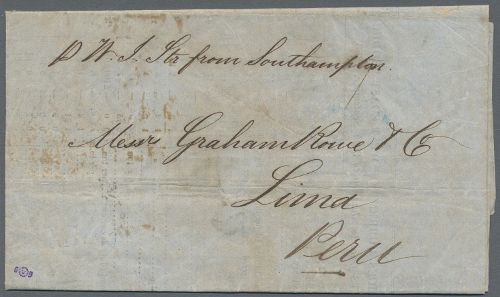 p W. I. Str from Southampton.
Messrs Graham Rowe & Co
Lima
Peru